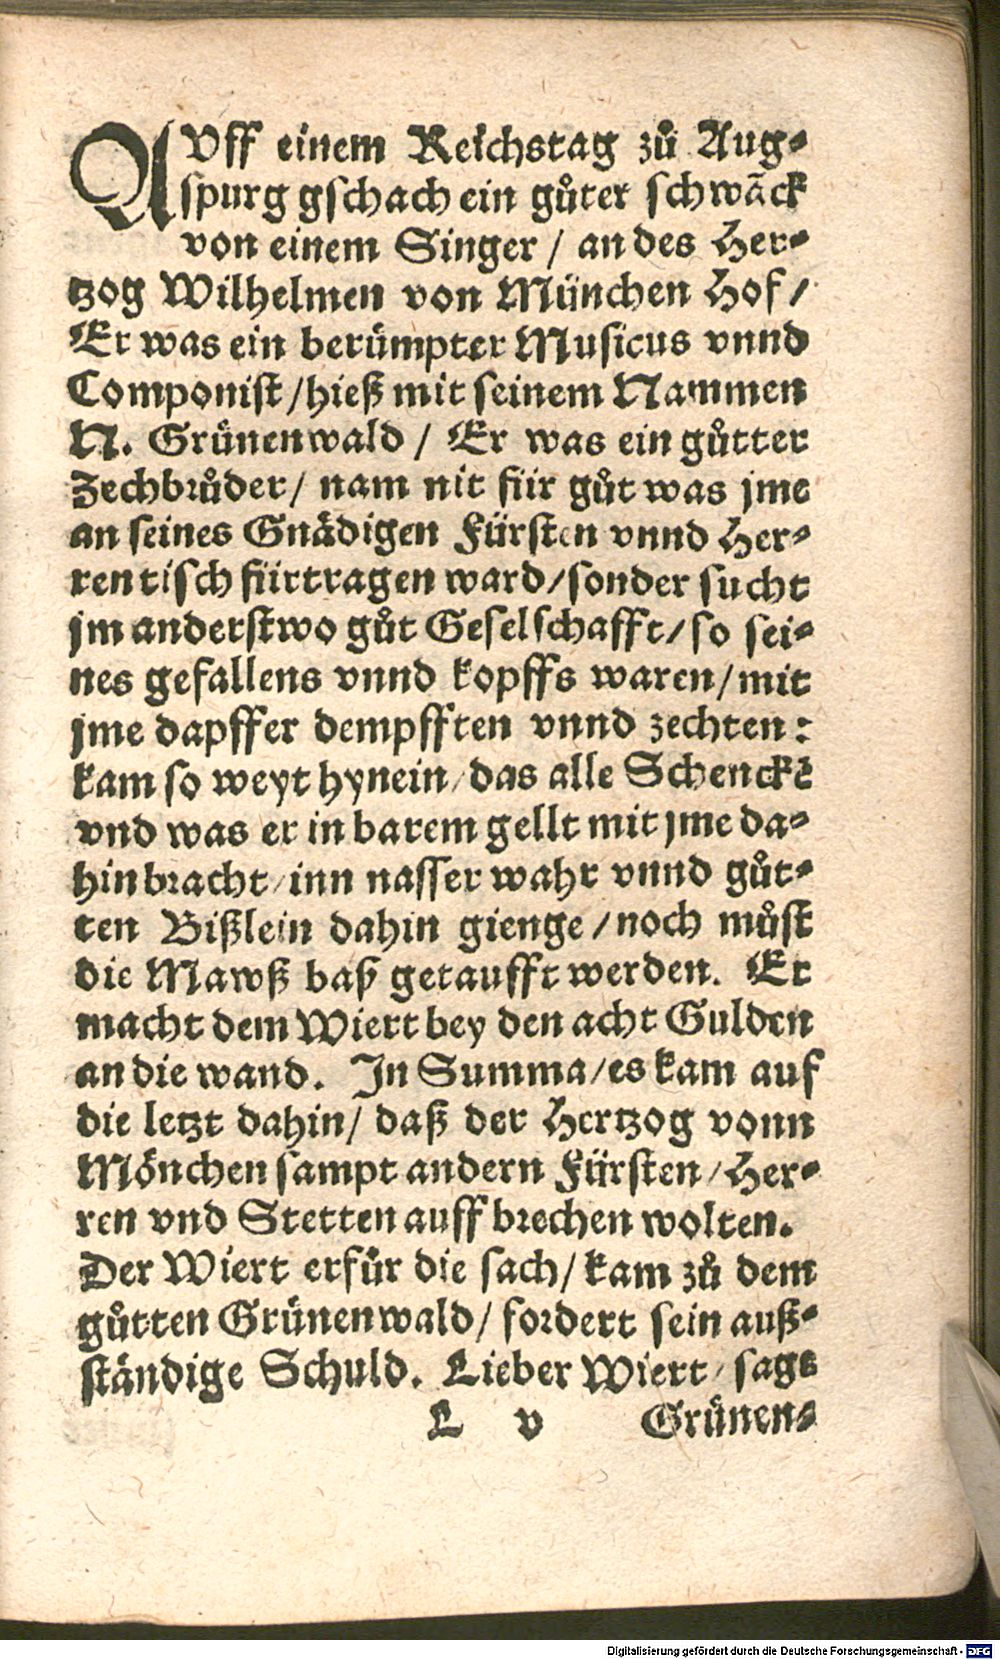 AVff einem Reichstag zů Aug-
spurg gschach ein gůter schwāck
von einem Singer / an des Her-
tzog Wilhelmen von München Hof /
Er was ein berümpter Musicus vnnd
Componist / hieß mit seinem Nammen
N. Grünenwald / Er was ein gůtter
Zechbrůder / nam nit für gůt was jme
an seines Gnädigen Fürsten vnnd Her-
ren tisch fürtragen ward / sonder sucht
jm anderstwo gůt Geselschafft / so sei-
nes gefallens vnnd kopffs waren / mit
jme dapffer dempfften vnnd zechten:
kam so weyt hynein / das alle Schenckē
vnd was er in barem gellt mit jme da-
hin bracht / inn nasser wahr vnnd gůt-
ten Bißlein dahin gienge / noch můst
die Mawß baß getaufft werden. Er
macht dem Wiert bey den acht Gulden
an die wand. In Summa / es kam auf
die letzt dahin / daß der Hertzog vonn
Mönchen sampt andern Fürsten / Her-
ren vnd Stetten auff brechen wolten.
Der Wiert erfůr die sach / kam zů dem
gůtten Grünenwald / fordert sein auß-
ständige Schuld. Lieber Wiert / sagt
L v Grünen-
Digitalisierung gefördert durch die Deutsche Forschungsgemeinschaft - DFG